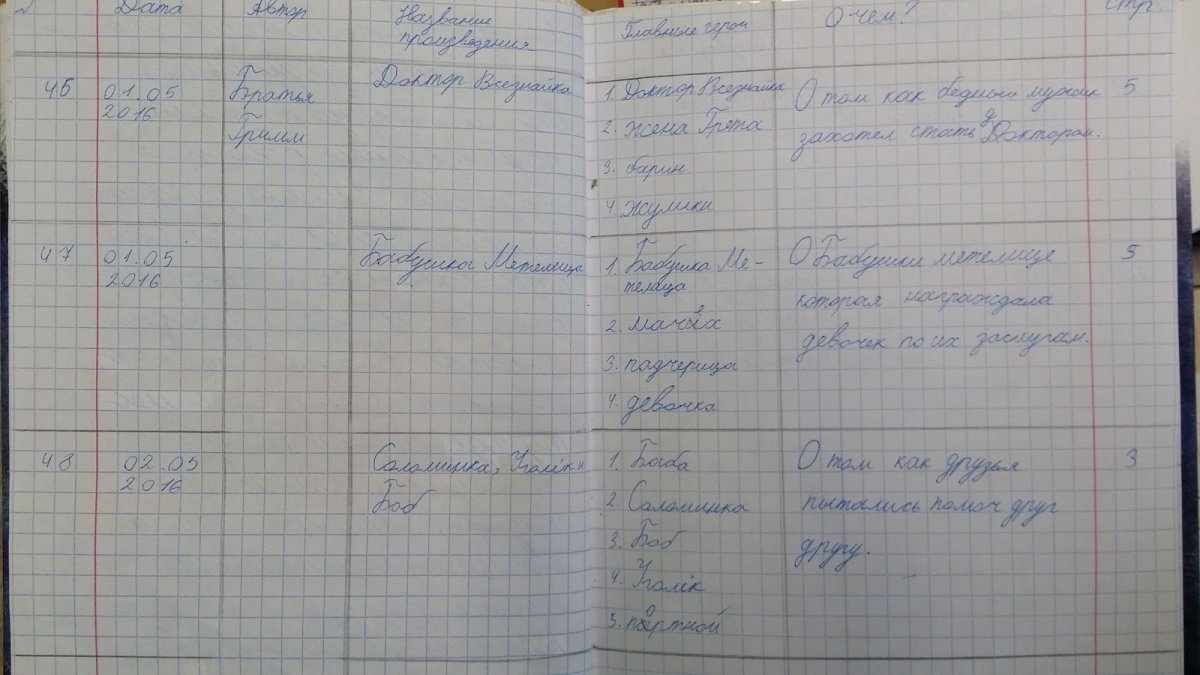 Дата Автор Название Главные герои О чем? стр.
произведения
46 01.05 Братья Доктор Всезнайка 1. Доктор Всезнайка О том как бедный мужик 5
2016 Гримм 2. жена Грета захотел стать Доктором.
3. барин
4. жулики
47 01.05 Бабушка Метелица 1. Бабушка Ме- О Бабушки метелице 5
2016 телица которая награждала
2. мачеха девочек по их заслугам.
3. падчерица
4. девочка
48 02.05 Соломинка, Уголёк и 1. Баба О том как друзья 3
2016 Боб 2. Соломинка пытались помоч друг
3. Боб другу.
4. Уголёк
5. портной